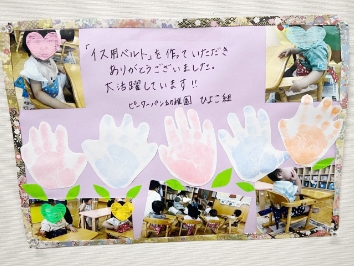 「イス用ベルト」を作っていただき
ありがとうございました。
大活躍しています!!
ピーターパン幼稚園 ひよこ組